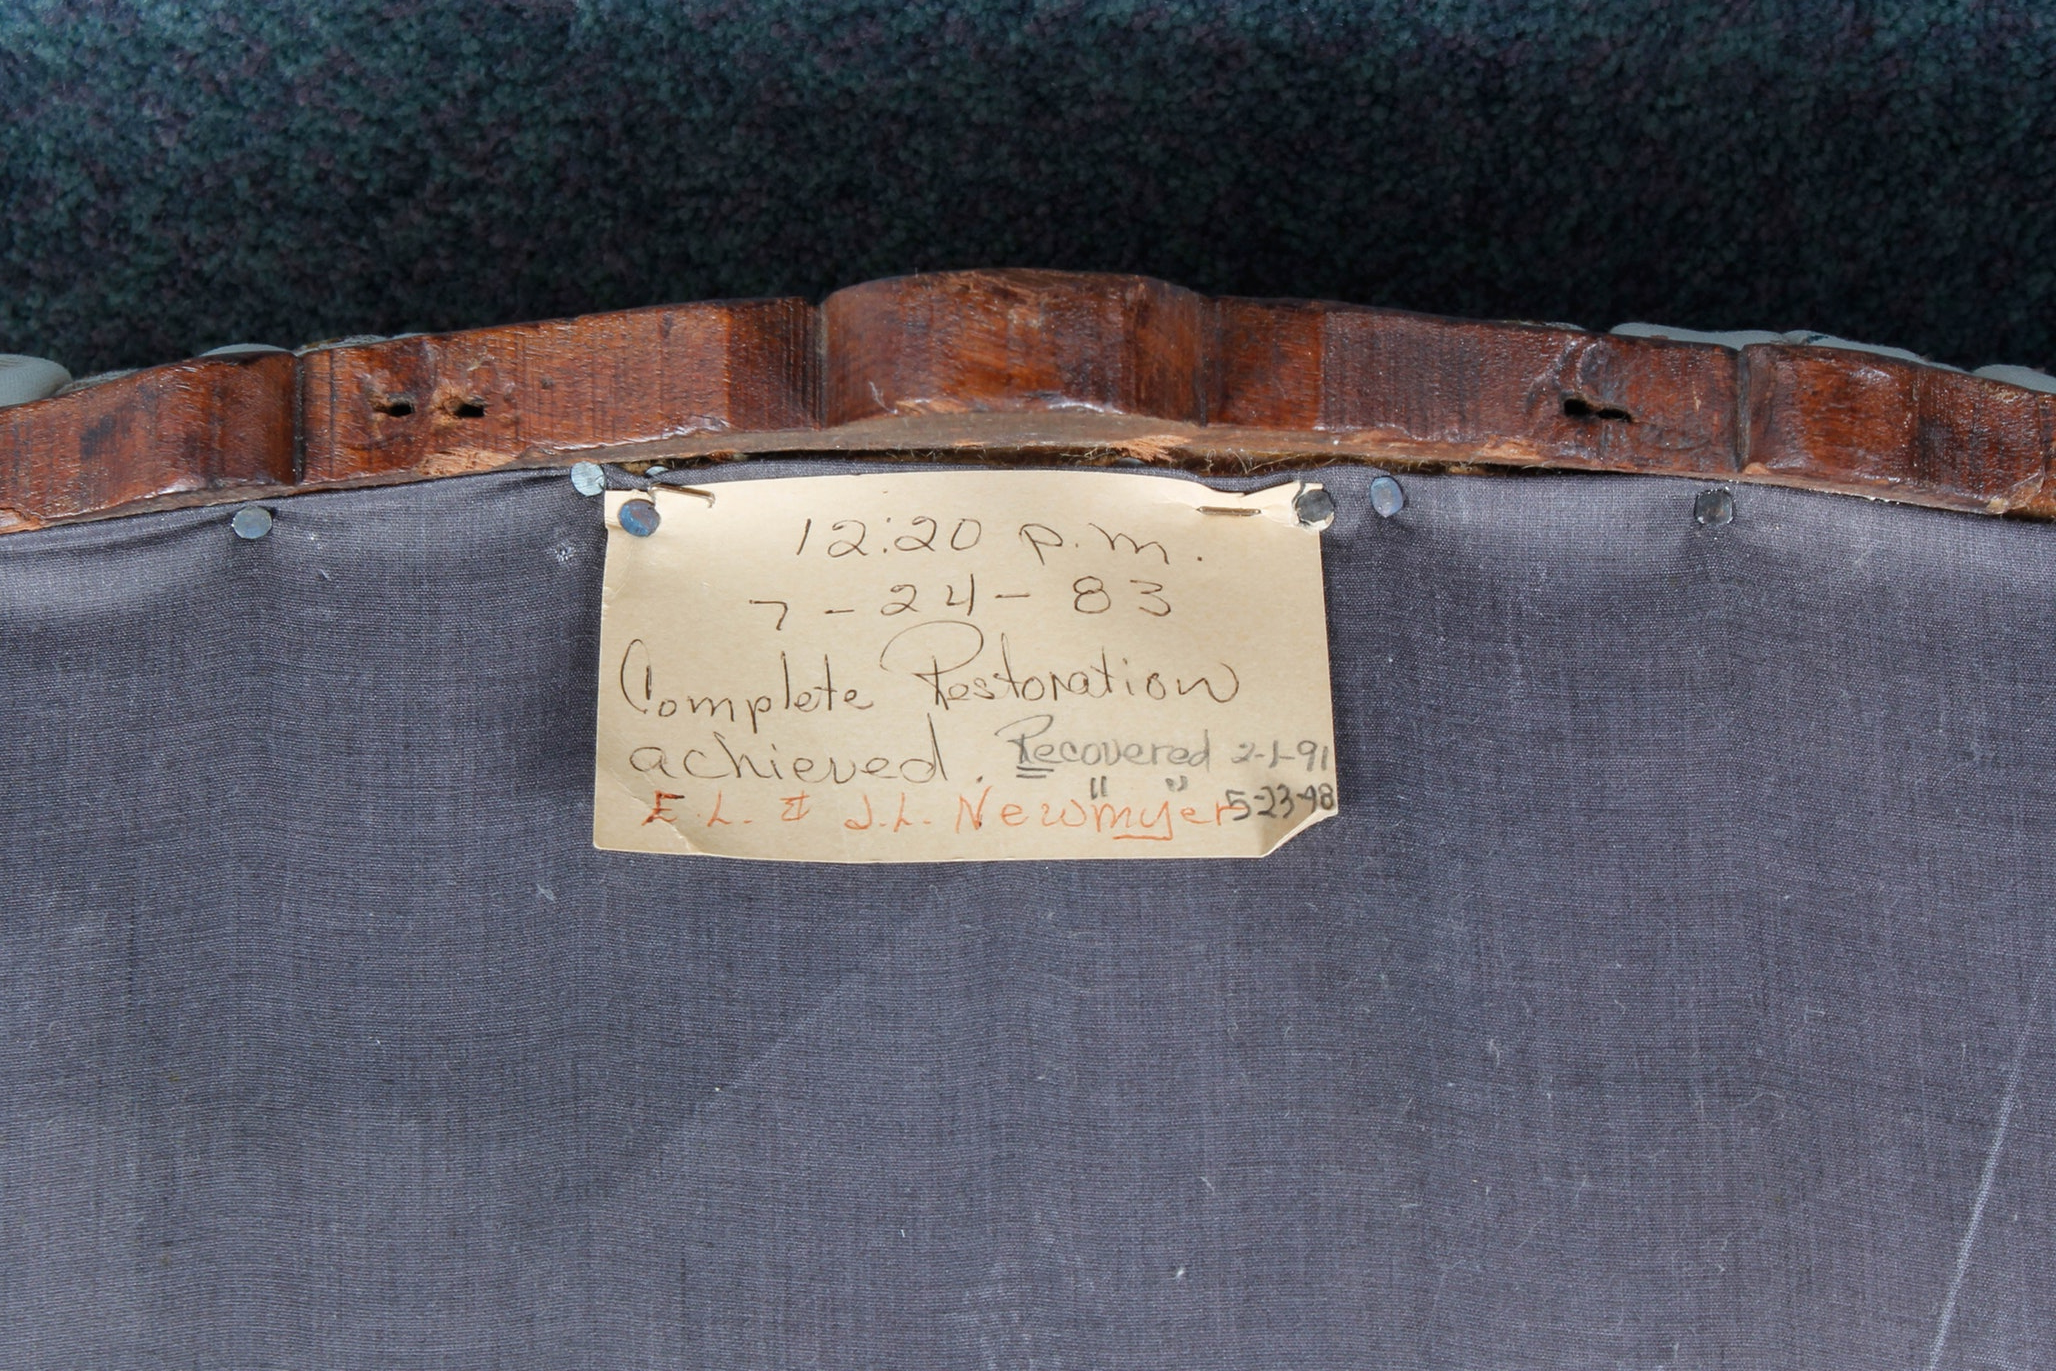 12:20 p.m.
7-24-83
Complete Restoration
achieved. Recovered 2-1-91
" " 5-23-98
E.L. & J.L. Newmyer